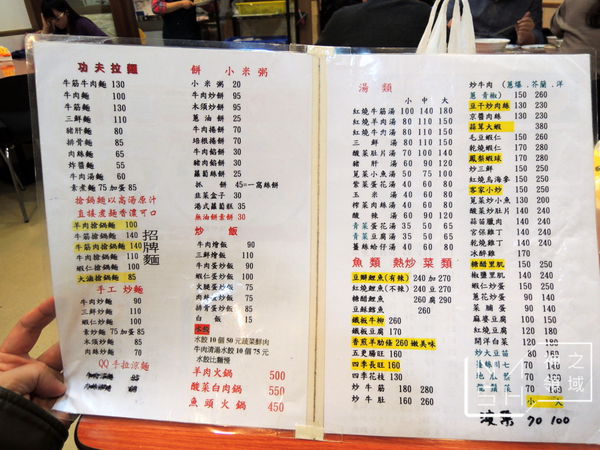 功夫拉麵
牛筋牛肉麵 130
牛筋麵 100
牛肉麵 100
三鮮麵 110
豬肝麵 80
排骨麵 85
肉絲麵 65
炸醬麵 55
牛肉湯麵 60
素素麵 75 加蛋 85
搶鍋麵以高湯原汁
直接煮麵香濃可口
羊肉搶鍋麵 100
牛筋搶鍋麵 140
牛筋肉搶鍋麵 140
牛肉搶鍋麵 110
蝦仁搶鍋麵 100
大滷搶鍋麵 85
招牌麵
手工炒麵
牛肉炒麵 90
三鮮炒麵 110
蝦仁炒麵 100
素炒麵 75 加蛋 85
木須炒麵 85
肉絲炒麵 80
QQ手拉涼麵
餅 小米粥
小米粥 20
牛肉炒餅 95
木須炒餅 85
蔥油餅 25
牛肉捲餅 100
培根捲餅 100
牛肉餡餅 30
豬肉餡餅 30
蘿蔔絲餅 25
抓餅 45=一窩絲餅
韭菜盒子 30
港式蘿蔔糕 35
無油餅套餅 30
炒飯
牛肉燴飯 90
三鮮燴飯 110
牛肉蛋炒飯 90
蝦仁蛋炒飯 100
火腿蛋炒飯 80
肉絲蛋炒飯 80
白飯 15
水餃
水餃 10 個 50 元蔬菜鮮肉
牛肉清湯水餃 10 個 75 元
水餃比麵慢
羊肉火鍋 500
酸菜白肉鍋 550
魚頭火鍋 450
湯類
小 中 大
紅燒牛筋湯 100 140 180
紅燒牛肉湯 80 110 140
紅燒牛肋湯 80 110 140
三鮮湯 80 110 140
酸菜肚片湯 70 100 140
豬肝湯 60 90 120
莧菜小魚湯 50 70 140
紫菜蛋花湯 40 50 60
玉米湯 40 60 80
榨菜肉絲湯 40 60 80
酸辣湯 60 90 120
青菜蛋花湯 35 50 70
青菜豆腐湯 35 50 70
薑絲蛤仔湯 40 60 80
魚類 熱炒菜類
豆瓣鯉魚(有辣) 240 加 270
紅燒鯉魚(不辣) 240 豆 270
糖醋鯉魚 260 腐 290
豆酥鱈魚 260
鐵板牛柳 260
鐵板豆腐 170
香煎羊肋條 260 嫩美味
五更腸旺 160
四季長旺 160
四季花枝 130
炒牛筋 180 280
炒牛肚 160 260
炒牛肉 (蔥爆．芥蘭．洋
蔥 青椒) 150 260
豆干炒肉絲 130 230
京醬肉絲 130 230
蒜茸大蝦 380
毛豆蝦仁 150 260
乾燒蝦仁 170 280
鳳梨蝦球 170 280
炒三鮮 150 260
紅燒烏海參 170 280
客家小炒 150 250
莧菜炒小魚 130 230
酸菜炒肚片 140 240
青菜臘肉 140 240
宮保雞丁 140 240
乾燒雞丁 140 240
冰醉雞 170
糖醋里肌 150 250
椒鹽里肌 150 250
蝦仁炒蛋 150 250
蔥花炒蛋 90 140
菜脯蛋 90 140
麻婆豆腐 90 150
紅燒豆腐 90 140
開洋白菜 90 140
炒大豆苗 160
70 100